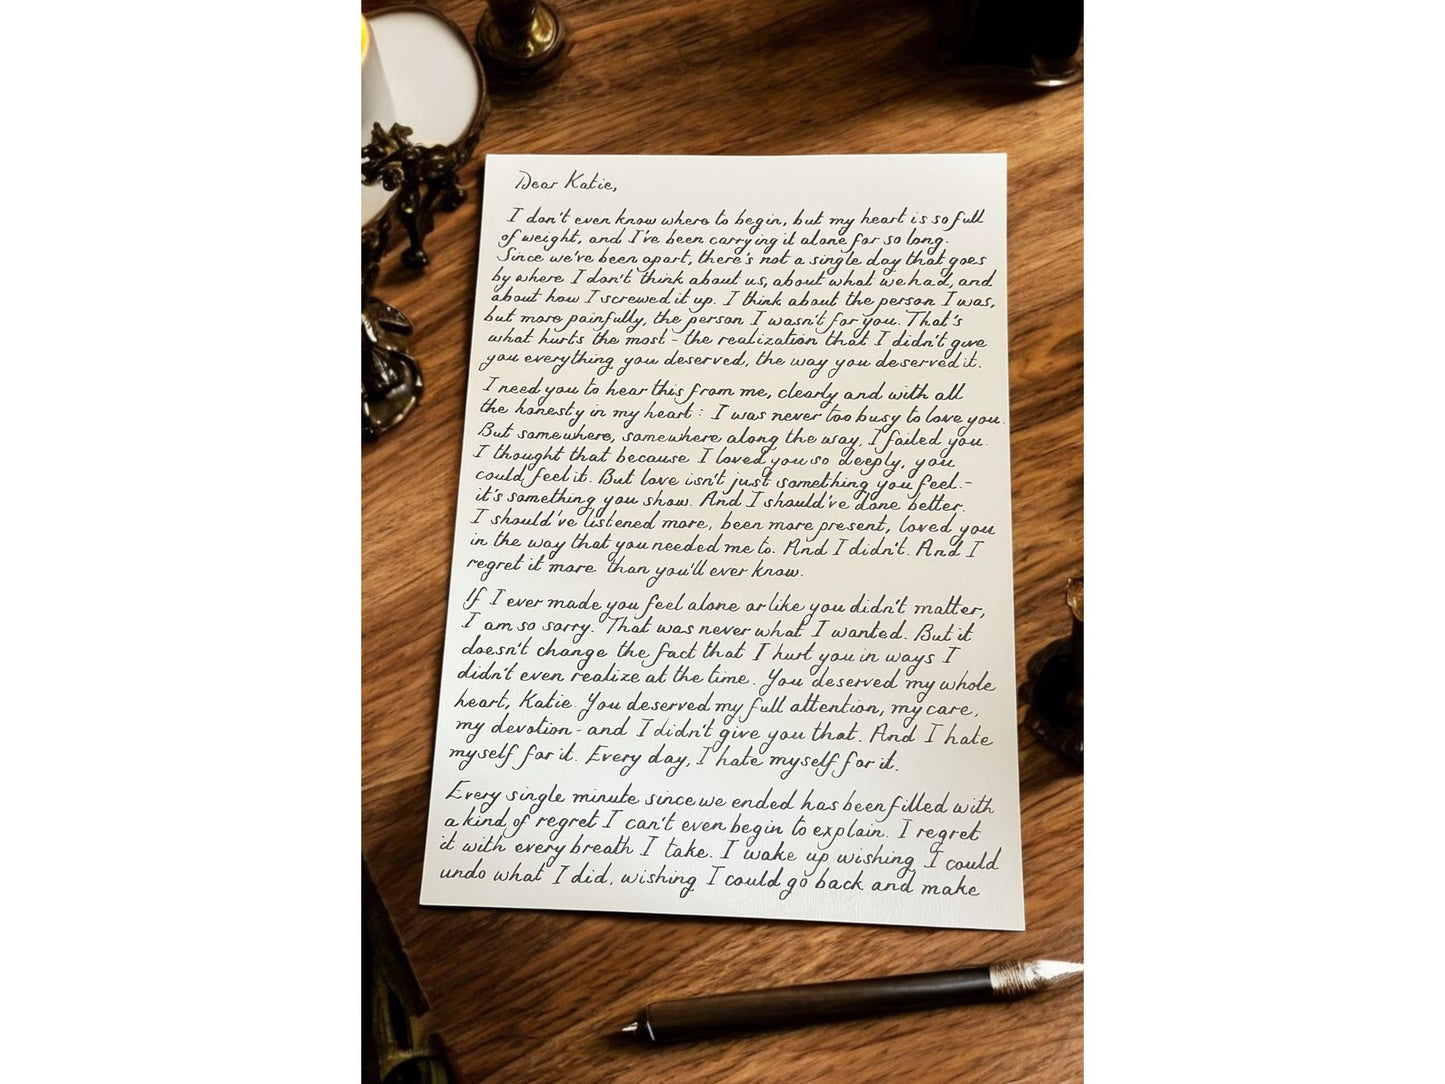 Dear Katie,
I don't even know where to begin, but my heart is so full
of weight, and I've been carrying it alone for so long.
Since we've been apart, there's not a single day that goes
by where I don't think about us, about what we had, and
about how I screwed it up. I think about the person I was,
but more painfully, the person I wasn't for you. That's
what hurts the most - the realization that I didn't give
you everything you deserved, the way you deserved it.
I need you to hear this from me, clearly and with all
the honesty in my heart: I was never too busy to love you.
But somewhere, somewhere along the way, I failed you.
I thought that because I loved you so deeply, you
could feel it. But love isn't just something you feel.-
it's something you show. And I should've done better.
I should've listened more, been more present, loved you
in the way that you needed me to. And I didn't. And I
regret it more than you'll ever know.
If I ever made you feel alone or like you didn't matter,
I am so sorry. That was never what I wanted. But it
doesn't change the fact that I hurt you in ways I
didn't even realize at the time. You deserved my whole
heart, Katie. You deserved my full attention, my care,
my devotion - and I didn't give you that. And I hate
myself for it. Every day, I hate myself for it.
Every single minute since we ended has been filled with
a kind of regret I can't even begin to explain. I regret
it with every breath I take. I wake up wishing I could
undo what I did, wishing I could go back and make